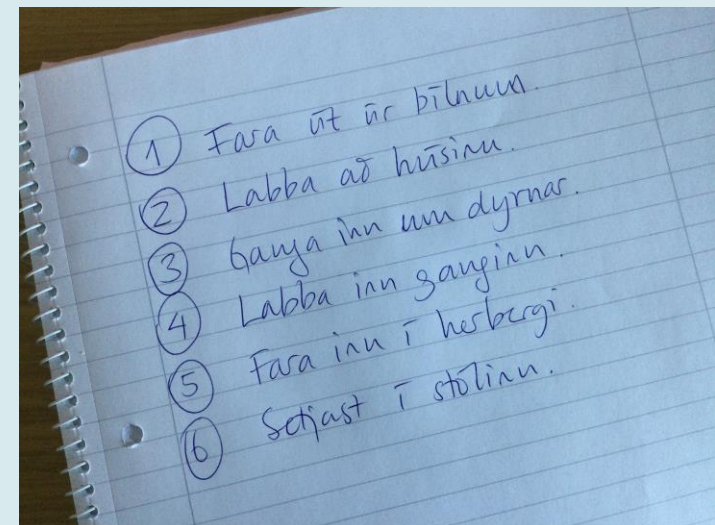 1 Fara út úr bílnum.
2 Labba að húsinu.
3 Ganga inn um dyrnar.
4 Labba inn ganginn.
5 Fara inn í herbergi.
6 Setjast í stólinn.